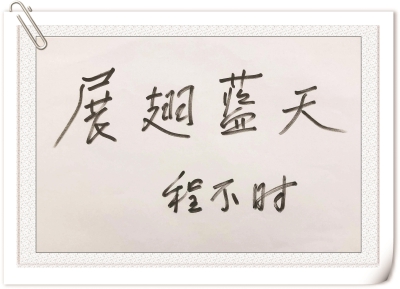 展翅蓝天
程不时